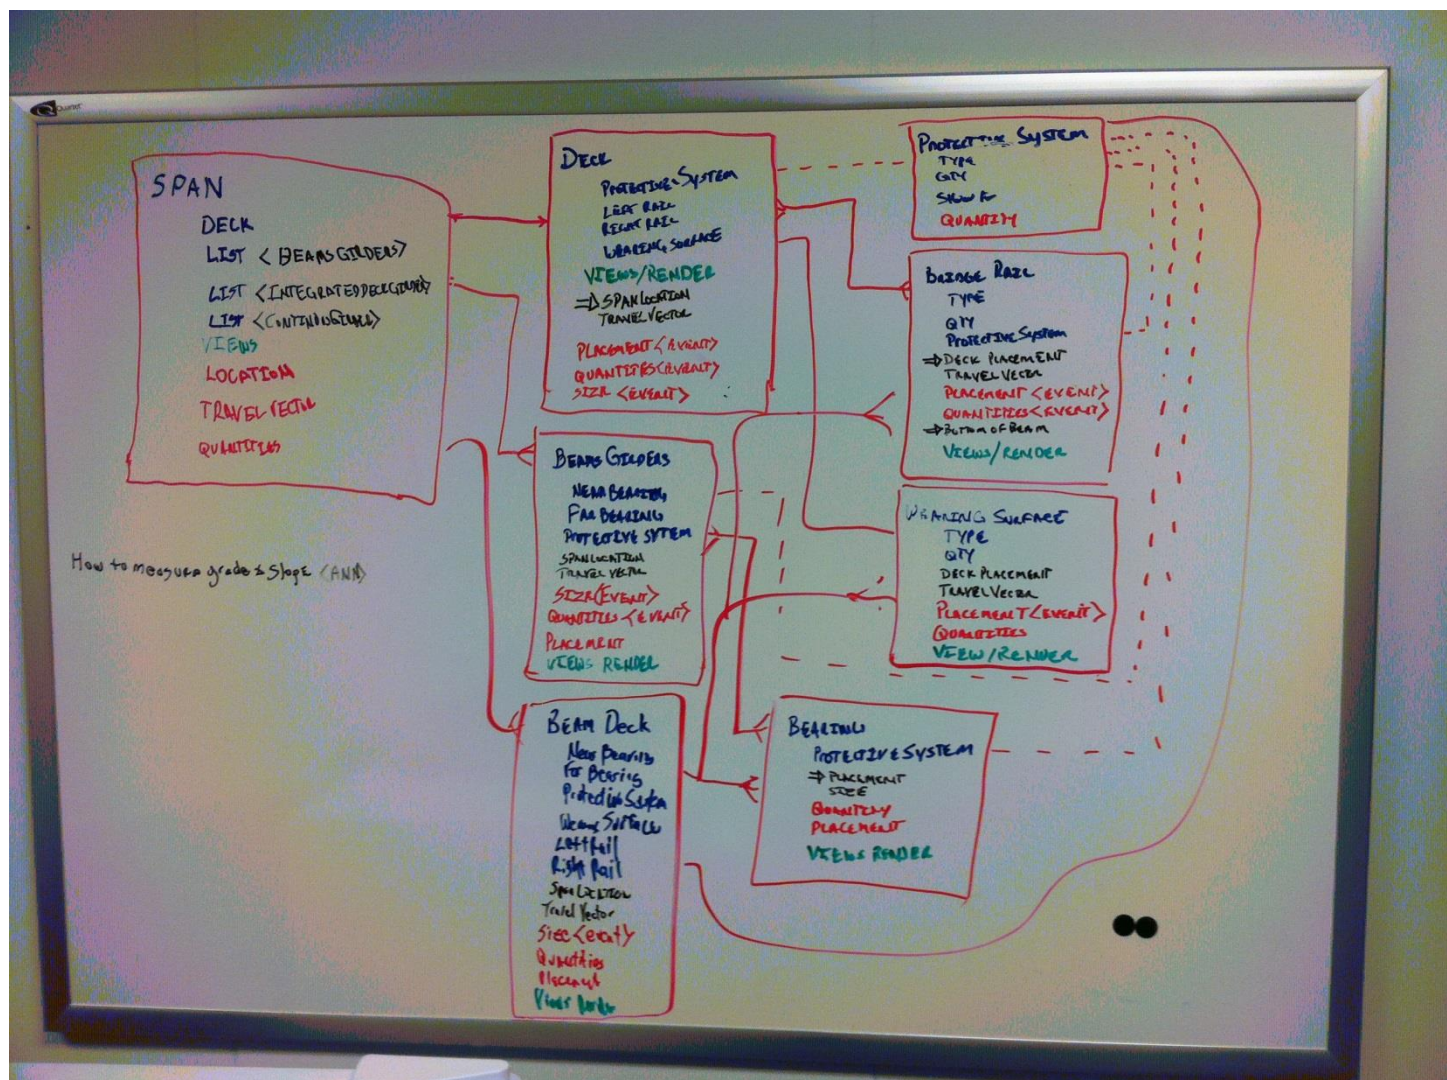 Quartet
SPAN
DECK
LIST <BEAMS GIRDERS>
LIST <INTEGRATEDDECKGIRDER>
LIST <CONTINOUSGIRDER>
VIEWS
LOCATION
TRAVEL VECTOR
QUANTITIES
How to measure grade & Slope <ANN>
DECK
PROTECTIVE SYSTEM
LEFT RAIL
RIGHT RAIL
WEARING SURFACE
VIEWS/RENDER
⇒ SPAN LOCATION
TRAVEL VECTOR
PLACEMENT <EVENT>
QUANTITES <EVENT>
SIZE <EVENT>
BEAMS GIRDERS
NEAR BEARING
FAR BEARING
PROTECTIVE SYTEM
SPAN LOCATION
TRAVEL VECTOR
SIZE <EVENT>
QUANTITIES <EVENT>
PLACEMENT
VIEWS RENDER
BEAM Deck
Near Bearing
Far Bearing
Protective System
Wearing Surface
Left Rail
Right Rail
Span Location
Travel Vector
Size <event>
Quantities
Placement
Views Render
PROTECTIVE SYSTEM
TYPE
QTY
QUANTITY
BRIDGE RAIL
TYPE
QTY
PROTECTIVE SYSTEM
⇒ DECK PLACEMENT
TRAVEL VECTOR
PLACEMENT <EVENT>
QUANTITIES <EVENT>
⇒ BOTTOM OF BEAM
VIEWS/RENDER
WEARING SURFACE
TYPE
QTY
DECK PLACEMENT
TRAVEL VECTOR
PLACEMENT <EVENT>
QUANTITIES
VIEW/RENDER
BEARING
PROTECTIVE SYSTEM
⇒ PLACEMENT
SIZE
QUANTITY
PLACEMENT
VIEWS RENDER